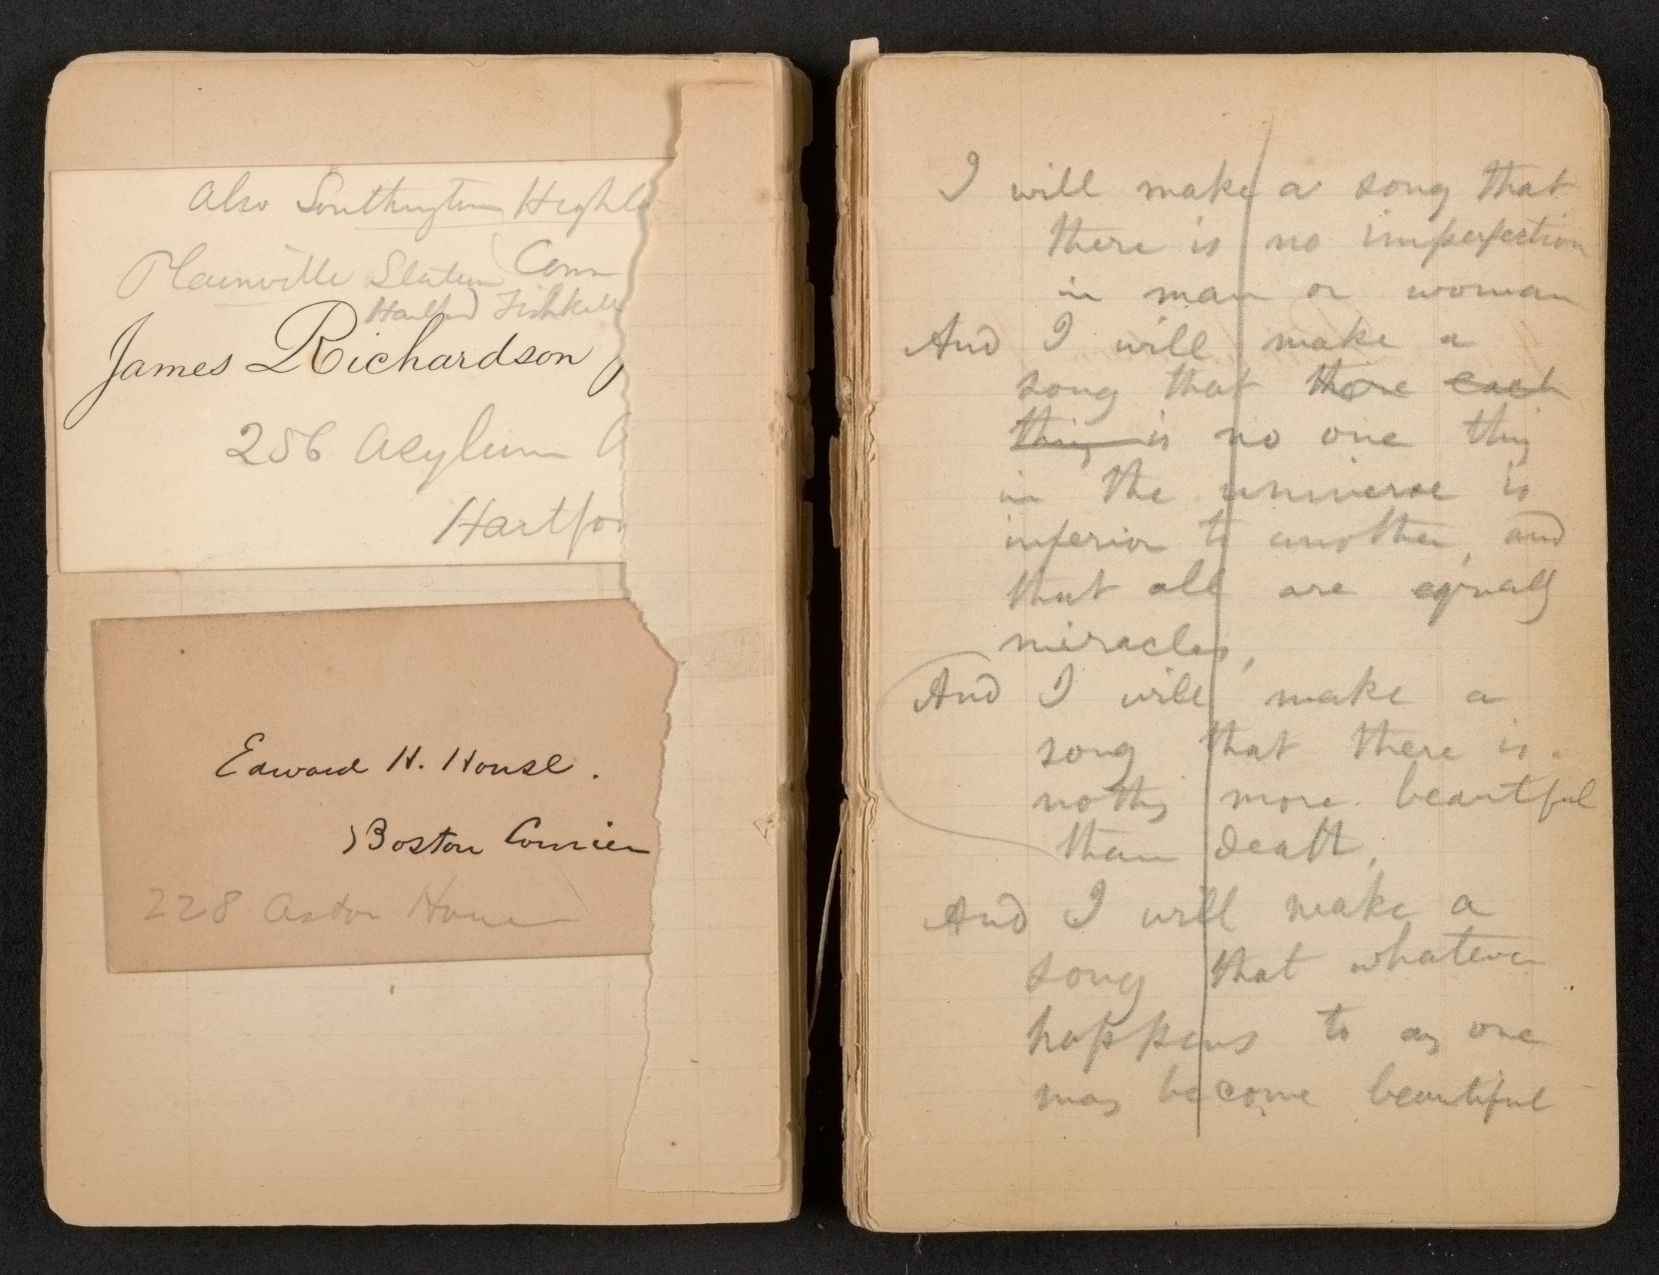 Also Southington Highl
Plainville Station Conn
Hartford Fishkill
James Richardson J
256 Asylum A
Hartfor
Edward H. House.
Boston Courier
228 Astor House
I will make a song that
there is no imperfection
in man or woman
And I will make a
song that there each
thing is no one thing
in the universe is
inferior to another, and
that all are equally
miracles,
And I will make a
song that there is
nothing more beautiful
than death,
And I will make a
song that whatever
happens to any one
may become beautiful